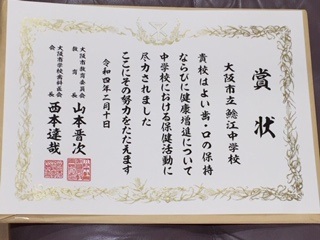 賞状
大阪市立鯰江中学校
貴校はよい歯・口の保持
ならびに健康増進について
中学校における保健活動に
尽力されました
ここにその努力をたたえます
令和四年二月十日
大阪市教育委員会
教育長 山本晋次
大阪市学校歯科医会
会長 西本達哉